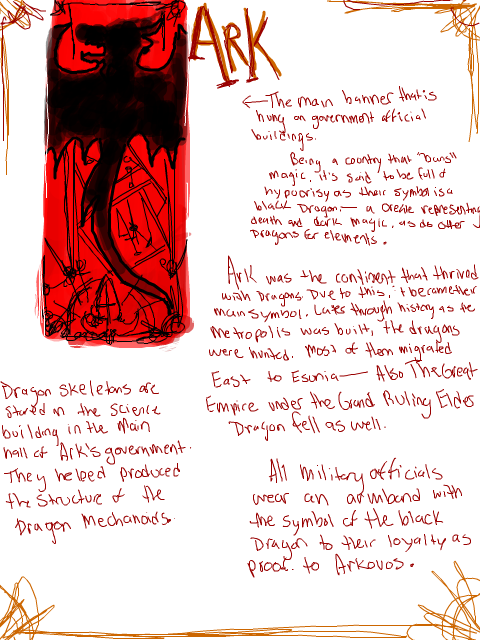 ARK
← The main banner that is
hung on government official
buildings.
Being a country that "Duns"
magic, it's said to be full of
hypocrisy as their symbol is a
black Dragon — a create representing
death and dark magic, as do other
Dragons for elements.
Ark was the continent that thrived
with Dragons. Due to this, it became their
main symbol. Later through history as the
Metropolis was built, the dragons
were hunted. Most of them migrated
East to Esunia — Also The Great
Empire under the Grand Ruling Elder
Dragon fell as well.
Dragon skeletons are
stored in the science
building in the Main
hall of Ark's government.
They helped produced
the structure of the
Dragon Mechanoids.
All military officials
wear an armband with
the symbol of the black
Dragon to their loyalty as
proof to Arkovos.